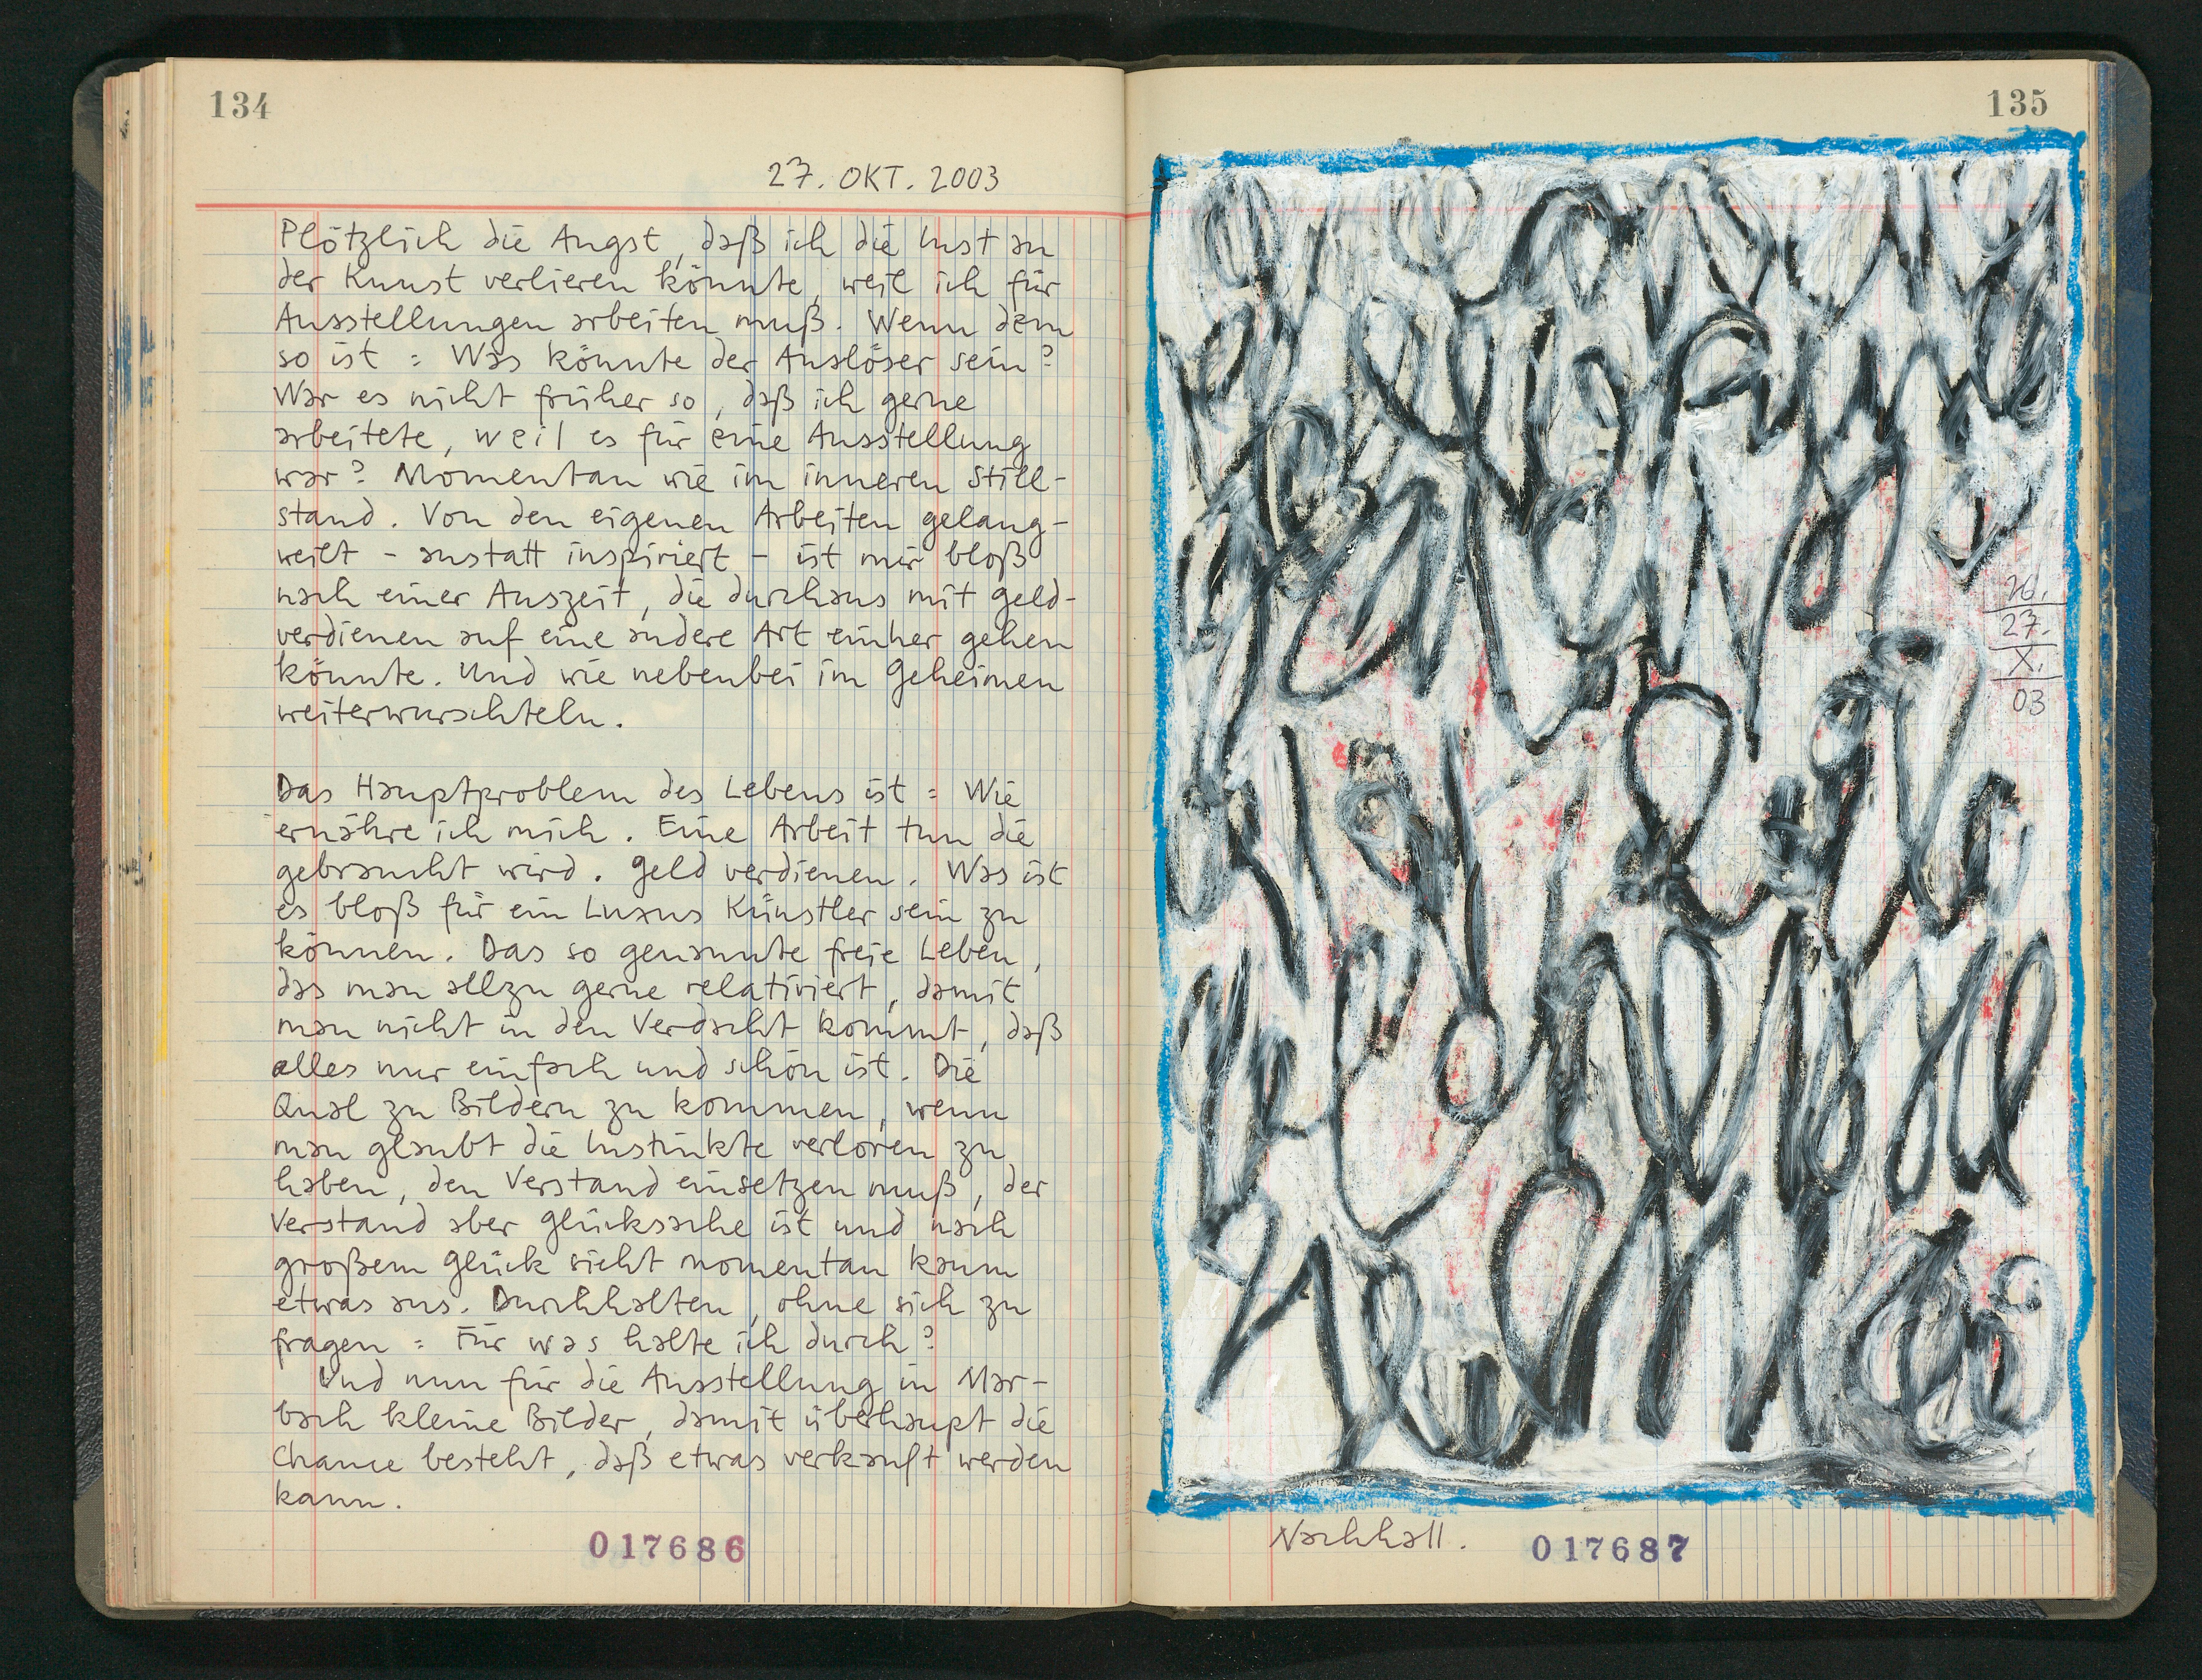 134
27. OKT. 2003
Plötzlich die Angst, daß ich die Lust an
der Kunst verlieren könnte, weil ich für
Ausstellungen arbeiten muß. Wenn dem
so ist : Was könnte der Auslöser sein?
War es nicht früher so, daß ich gerne
arbeitete, weil es für eine Ausstellung
war? Momentan wie im inneren Still-
stand. Von den eigenen Arbeiten gelang-
weilt - anstatt inspiriert - ist mir bloß
nach einer Auszeit, die durchaus mit Geld-
verdienen auf eine andere Art einher gehen
könnte. Und wie nebenbei im Geheimen
weiterwurschteln.
Das Hauptproblem des Lebens ist : Wie
ernähre ich mich. Eine Arbeit tun die
gebraucht wird. Geld verdienen. Was ist
es bloß für ein Luxus Künstler sein zu
können. Das so genannte freie Leben,
das man allzu gerne relativiert, damit
man nicht in den Verdacht kommt, daß
alles nur einfach und schön ist. Die
Qual zu Bildern zu kommen, wenn
man glaubt die Instinkte verloren zu
haben, den Verstand einsetzen muß, der
Verstand aber Glückssache ist und nach
großem Glück sieht momentan kaum
etwas aus. Durchhalten, ohne sich zu
fragen : Für was halte ich durch?
Und nun für die Ausstellung in Mar-
bach kleine Bilder, damit überhaupt die
Chance besteht, daß etwas verkauft werden
kann.
017686
135
26.
27.
X.
03
Nachhall.
017687